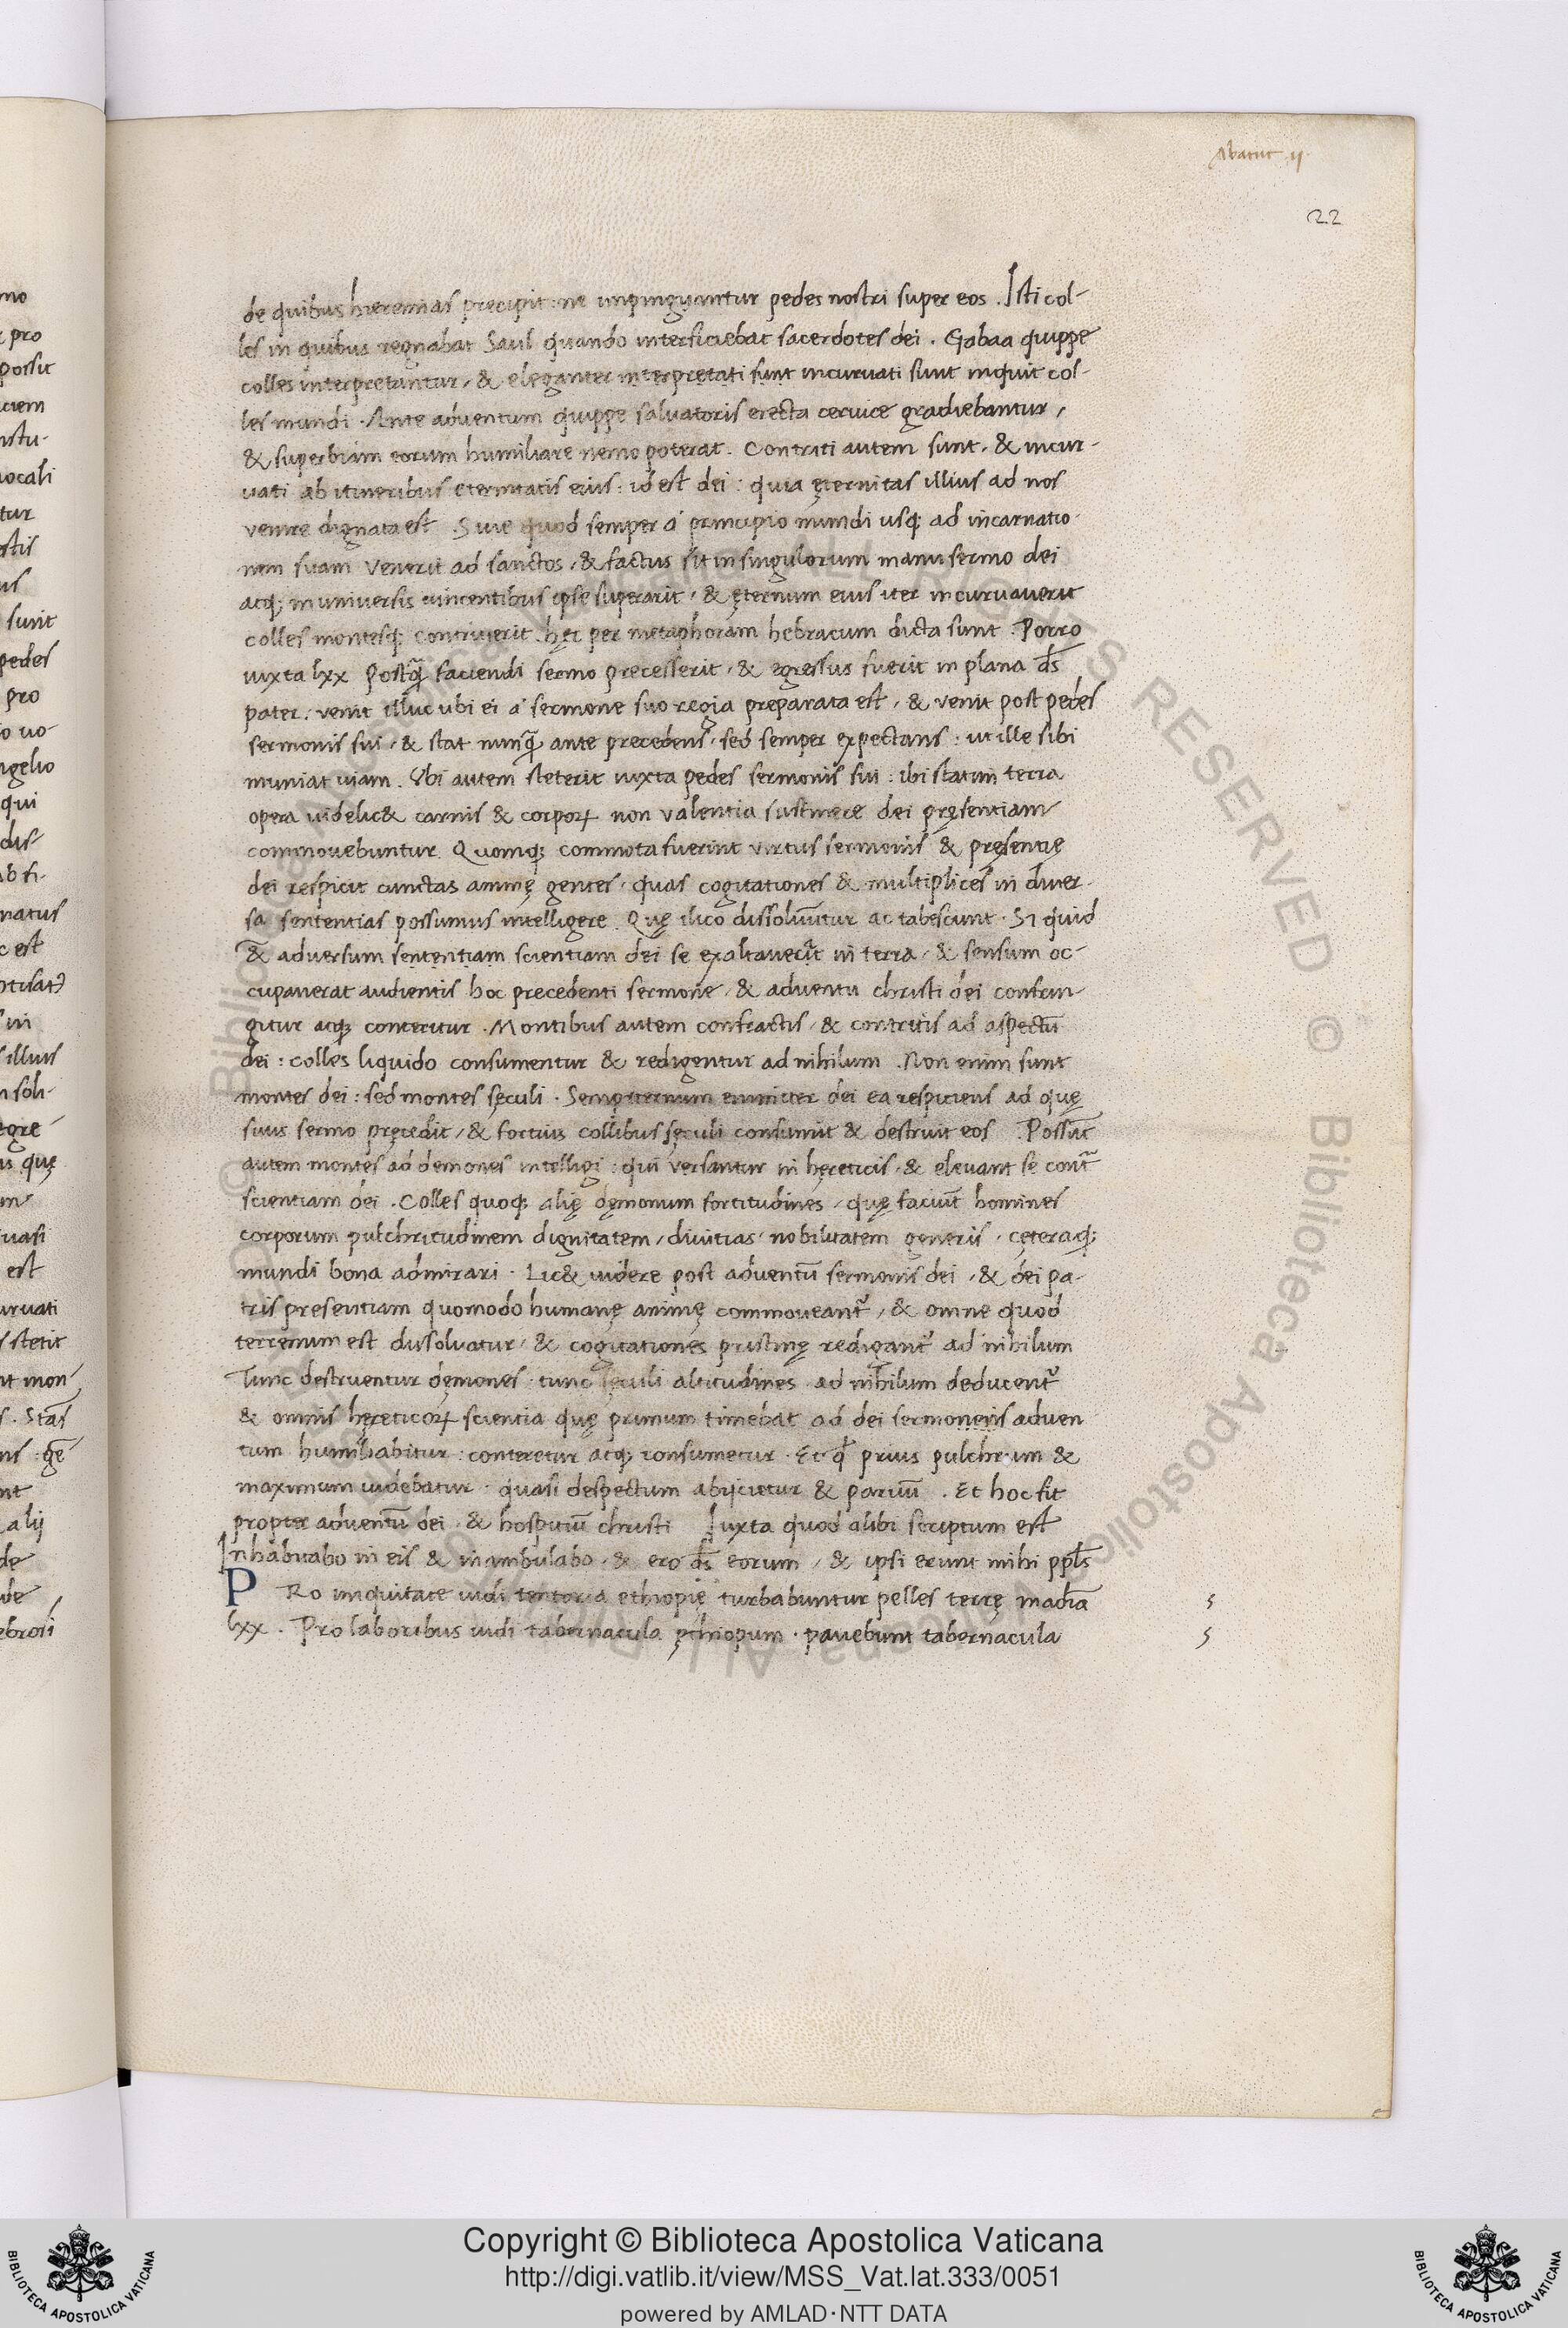 Abacuc .ii.
22
de quibus hieremias precipit : ne impinguantur pedes nostri super eos . Isti col-
les in quibus regnabat Saul quando interficiebat sacerdotes dei . Gabaa quippe
colles interpretantur , & eleganter interpretati sunt incuruati sunt inquit col-
les mundi . Ante aduentum quippe saluatoris erecta ceruice gradiebantur ,
& superbiam eorum humiliare nemo poterat . Contriti autem sunt , & incur-
uati ab itineribus eternitatis eius : id est dei : quia ęternitas illius ad nos
uenire dignata est . Siue quod semper a principio mundi usq; ad incarnatio-
nem suam Venerit ad sanctos , & factus sit in singulorum manu sermo dei
atq; in uniuersis uincentibus ipse superarit , & ęternum eius iter incuruauerit
colles montesq; contriuerit . hęc per metaphoram hebraeum dicta sunt . Porro
iuxta lxx postq̄ faciendi sermo precesserit , & egressus fuerit in plana d̄s
pater : venit illuc ubi ei a sermone suo regia preparata est , & venit post pedes
sermonis sui , & stat nunq̄ ante precedens , sed semper expectans : ut ille sibi
muniat uiam . Vbi autem steterit iuxta pedes sermonis sui : ibi statim terra
opera uidelic& carnis & corporꝝ non valentia sustinere dei pręsentiam
commouebuntur . Quomq; commota fuerint virtus sermonis & pręsentię
dei respicit cunctas animę gentes , quas cogitationes & multiplices in diuer-
sa sententias possumus intelligere . Quę ilico dissoluūtur ac tabescunt . Si quid
& aduersum sententiam scientiam dei se exaltauerat in terra , & sensum oc-
cupauerat audientis hoc precedenti sermone , & aduentu christi dei confrin-
gitur atq; conteritur . Montibus autem confractis , & contritis ad aspectū
dei : colles liquido consumentur & redigentur ad nihilum . Non enim sunt
montes dei : sed montes sęculi . Sempiternum enim iter dei ea respiciens ad quę
suus sermo pręcedit , & fortius collibus sęculi consumit & destruit eos . Possūt
autem montes ad demones intelligi : qui versantur in hęreticis , & eleuant se cont̄
scientiam dei . Colles quoq; alię dęmonum fortitudines , quę faciūt homines
corporum pulchritudinem dignitatem , diuitias , nobilitatem generis , cęteraq;
mundi bona admirari . Lic& uidere post aduentū sermonis dei , & dei pa-
tris presentiam quomodo humanę animę commoueant̄ , & omne quod
terrenum est dissoluatur , & cogitationes pristinę redigant̄ ad nihilum
Tunc destruentur dęmones . tunc sęculi altitudines ad nihilum deducent̄
& omnis hęreticorꝝ scientia quę primum timebat ad dei sermoneris aduen
tum humiliabitur : conteretur atq; consumetur . Et q̄ prius pulchrum &
maximum uidebatur . quasi despectum abijcietur & paruū . Et hoc fit
propter aduentū dei . & hospitiū christi Iuxta quod alibi scriptum est
Inhabitabo in eis & inambulabo . & ero d̄s eorum , & ipsi erunt mihi ppl̄s
P Ro iniquitate uidi tentoria ethiopię turbabuntur pelles terrę madiā
lxx . Pro laboribus uidi tabernacula ęthiopum . pauebunt tabernacula
Copyright © Biblioteca Apostolica Vaticana
http://digi.vatlib.it/view/MSS_Vat.lat.333/0051
powered by AMLAD·NTT DATA